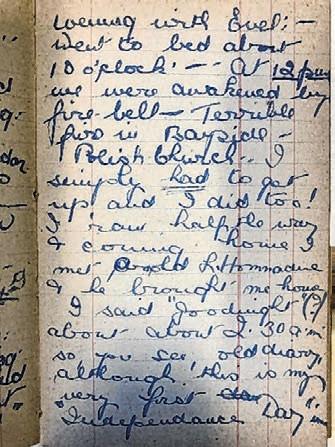 evening with Evel: –
went to bed about
10 o'clock! – – At 12 p.m.
we were awakened by
fire-bell – Terrible
fire in Bayside –
Polish Church. – I
simply had to get
up and I did too!
I ran half the way
& coming home I
met Arnold L'Hommadue
& he brought me home
I said "Goodnight" (?)
about about 2.30 a.m.
so you see old diary,
although this is my
very first Day "in
Independance